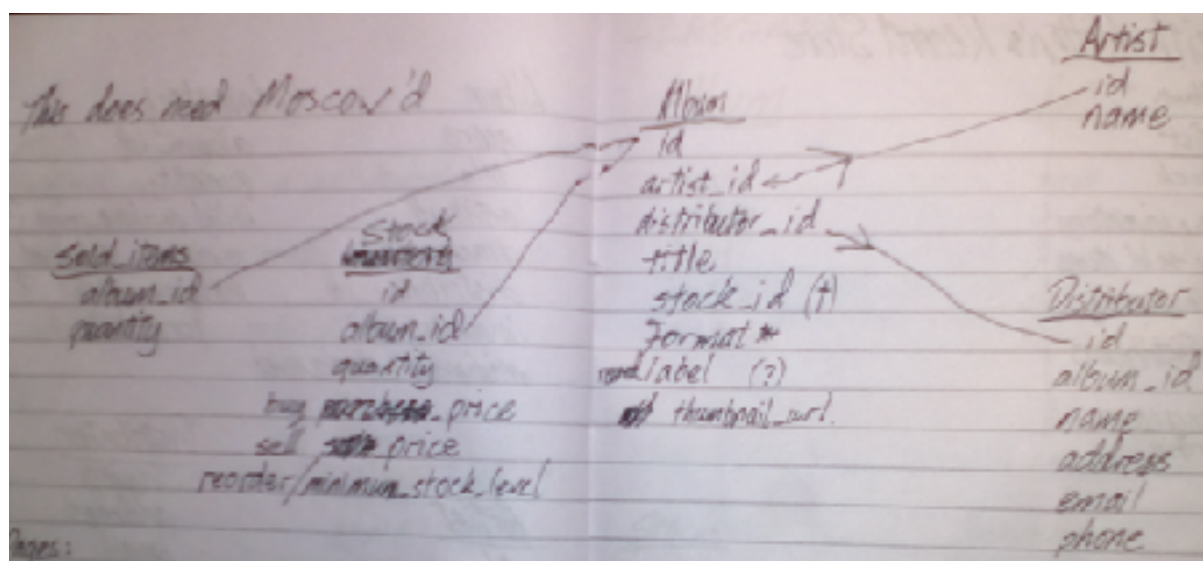 This does need Moscow'd
Sold_items
album_id
quantity
Stock
id
album_id
quantity
buy price
sell price
reorder/minimum_stock_level
Album
id
artist_id
distributor_id
title
stock_id
Format *
label (?)
thumbnail_url
Artist
id
name
Distributor
id
album_id
name
address
email
phone
Pages: